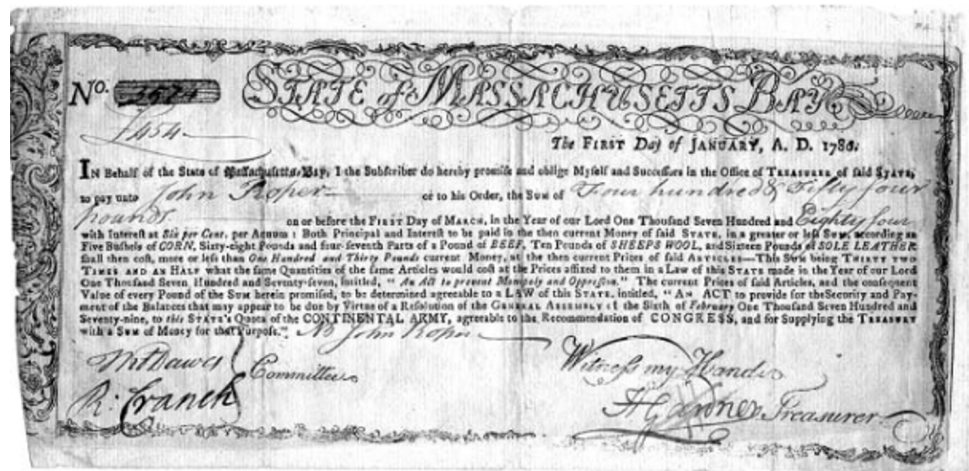 No. 2574 STATE of MASSACHUSETTS BAY
£454
The FIRST Day of JANUARY, A. D. 1780.
IN Behalf of the State of Massachusetts-Bay, I the Subscriber do hereby promise and oblige Myself and Successors in the Office of TREASURER of said STATE,
to pay unto John Roper or to his Order, the SUM of Four hundred & Fifty four
pounds on or before the FIRST Day of MARCH, in the Year of our Lord One Thousand Seven Hundred and Eighty four
with Interest at Six per Cent. per Annum: Both Principal and Interest to be paid in the then current Money of said STATE, in a greater or less SUM, according as
Five Bushels of CORN, Sixty-eight Pounds and four-seventh Parts of a Pound of BEEF, Ten Pounds of SHEEPS WOOL, and Sixteen Pounds of SOLE LEATHER
shall then cost, more or less than One Hundred and Thirty Pounds current Money, at the then current Prices of said ARTICLES—This SUM being THIRTY TWO
TIMES AND AN HALF what the same Quantities of the same Articles would cost at the Prices affixed to them in a Law of this STATE made in the Year of our Lord
One Thousand Seven Hundred and Seventy-seven, intitled, "An Act to prevent Monopoly and Oppression." The current Prices of said Articles, and the consequent
Value of every Pound of the SUM herein promised, to be determined agreeable to a LAW of this STATE, intitled, "AN ACT to provide for the Security and Pay-
ment of the Balances that may appear to be due by Virtue of a Resolution of the GENERAL ASSEMBLY of the Sixth of February One Thousand Seven Hundred and
Seventy-nine, to this STATE's Quota of the CONTINENTAL ARMY, agreeable to the Recommendation of CONGRESS, and for Supplying the TREASURY
with a SUM of Money for that Purpose." John Roper
Thos Dawes Committee Witness my Hand
R: Cranch H Gardner Treasurer